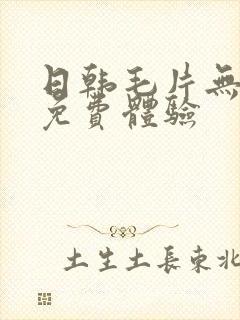 日韩毛片無
免費體驗
土生土長東北